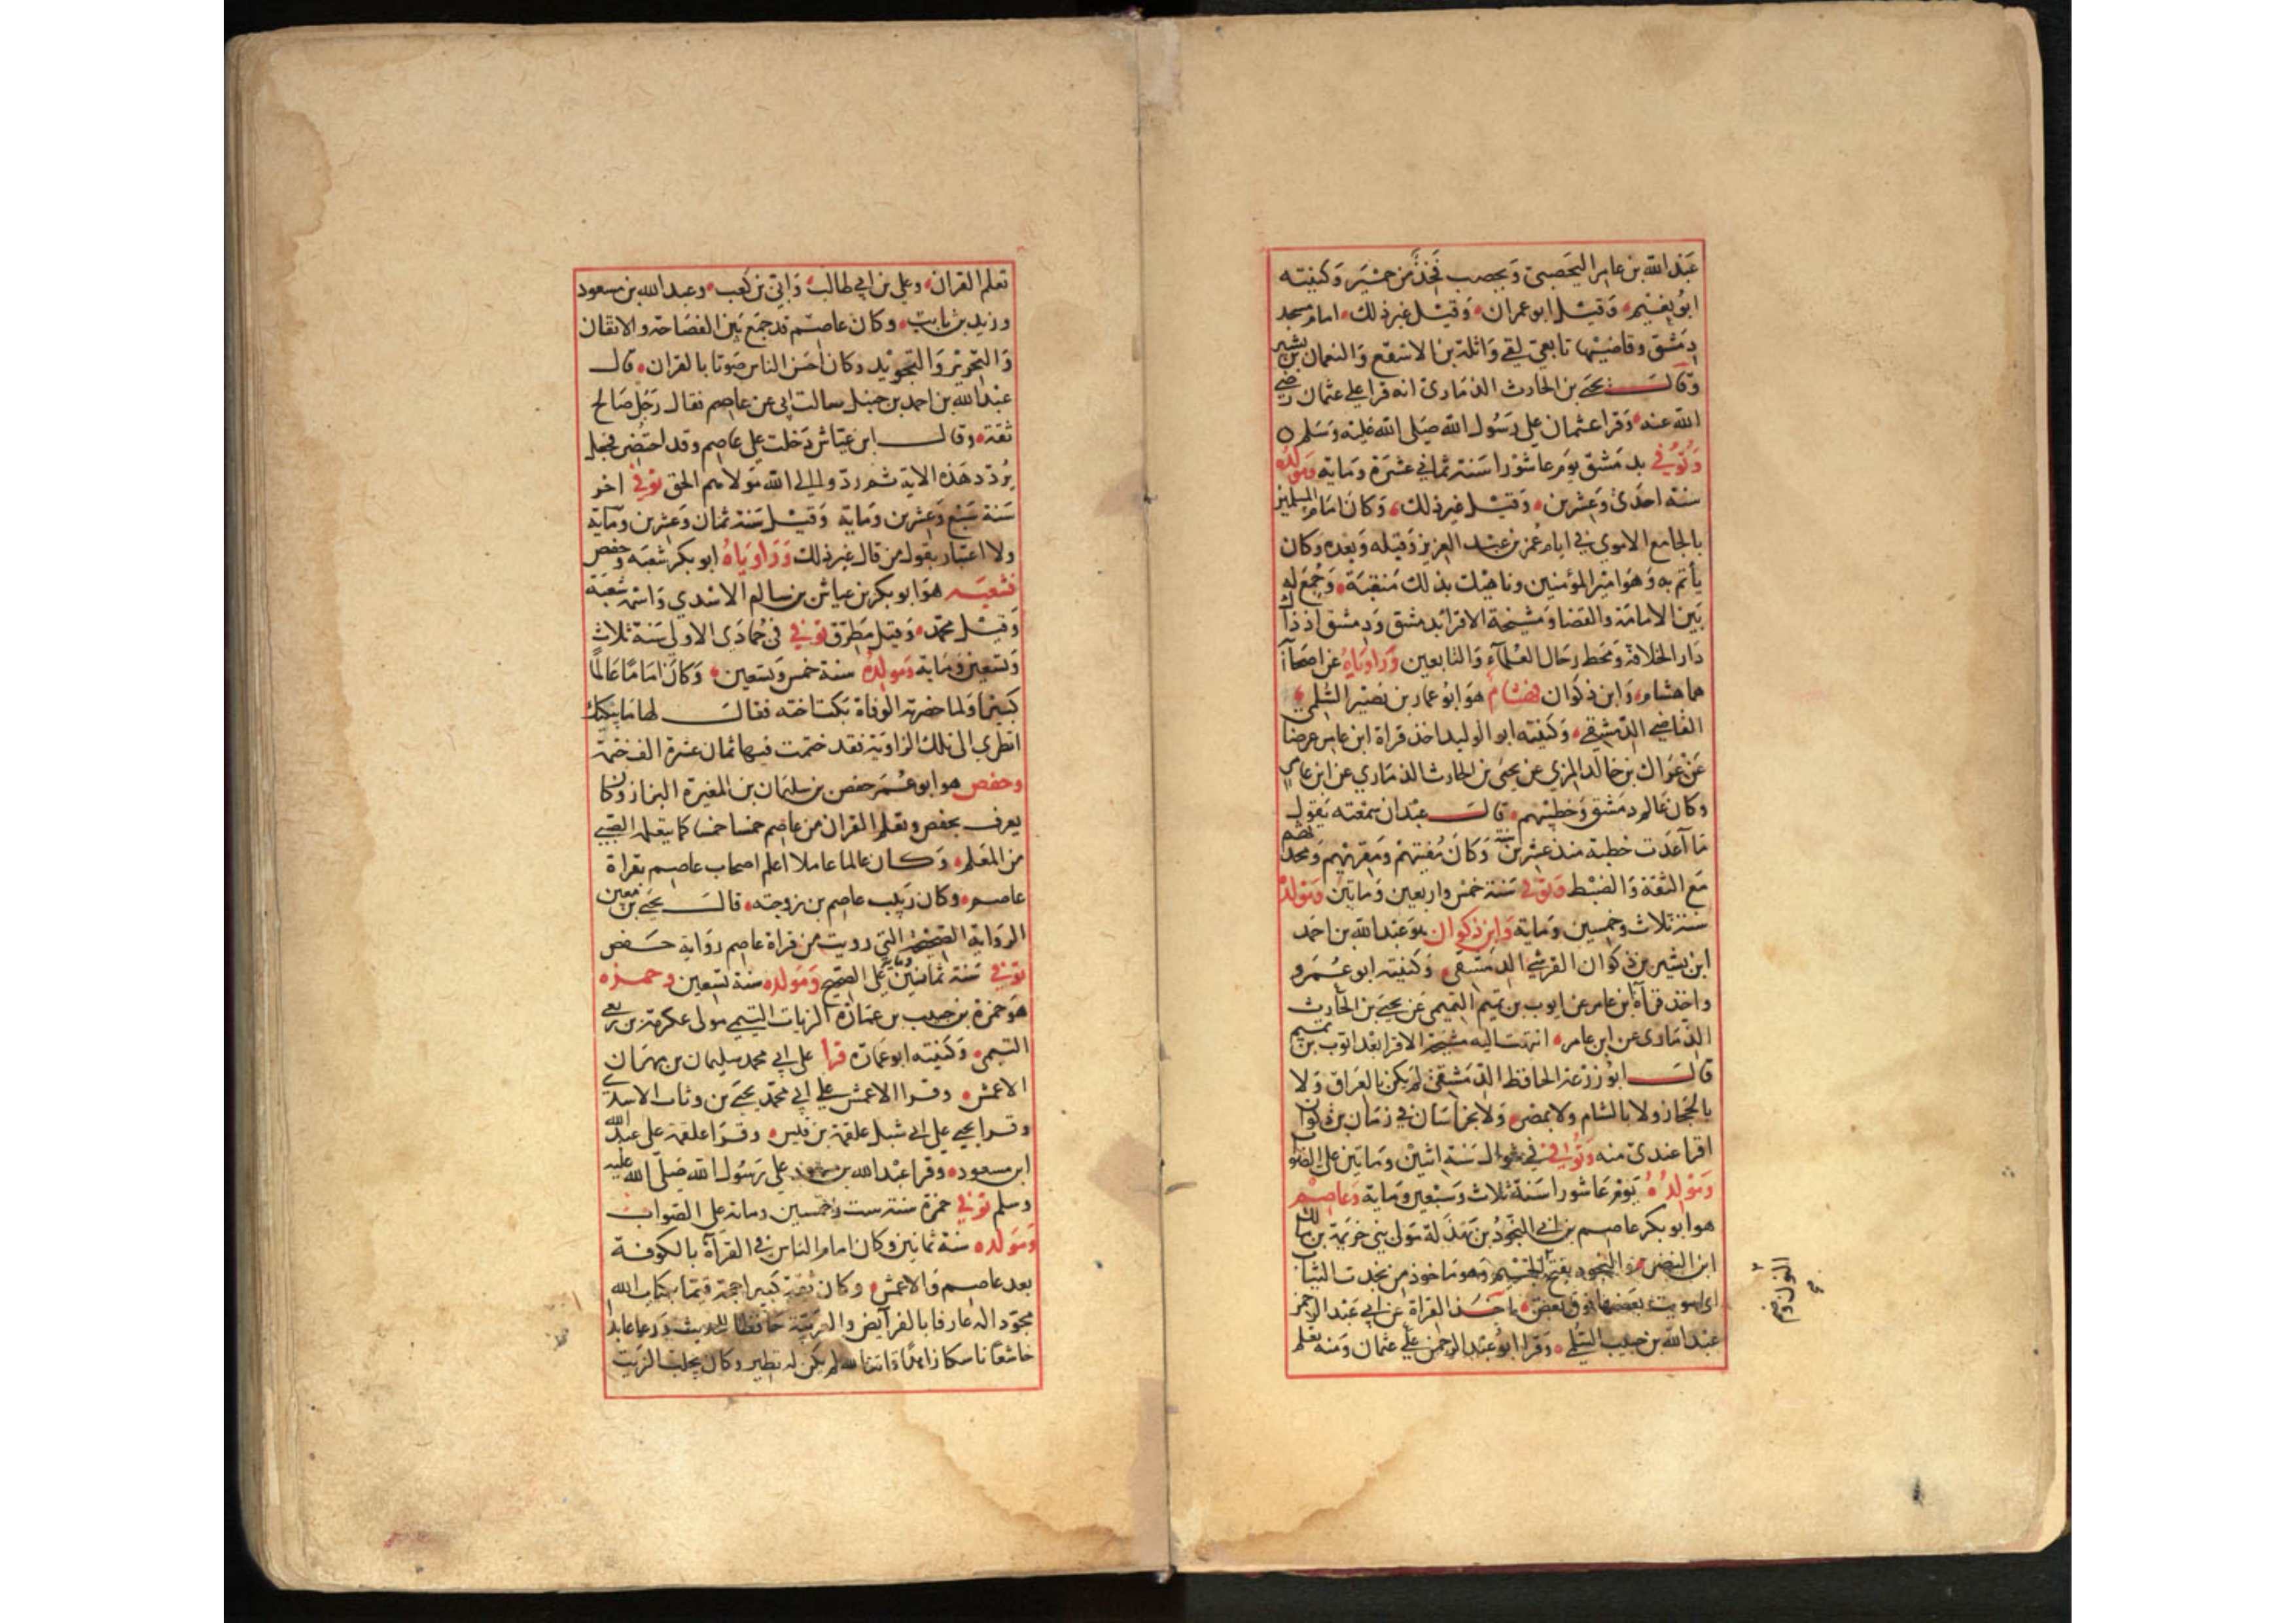 عبد الله بن عامر اليحصبي ويحصب فخذ من حمير وكنيته
ابو نعيم وقيل ابو عمران وقيل غير ذلك امام مسجد
دمشق وقاضيها تابعي لقي واثلة بن الاسقع والنعمان بن بشير
وقال يحيى بن الحارث الذماري انه قرا على عثمان رضي
الله عنه وقرا عثمان على رسول الله صلى الله عليه وسلم
وتوفي بدمشق يوم عاشورا سنة ثماني عشرة ومايه ومولده
سنة احدى وعشرين وقيل غير ذلك وكان امام المسلمين
بالجامع الاموي في ايام عمر بن عبد العزيز وقبله وبعده وكان
يأتم به وهو امير المؤمنين وناهيك بذلك منقبة وجمع له
بين الامامة والقضا ومشيخة الاقرا بدمشق ودمشق اذ ذاك
دار الخلافة ومحط رحال العلمآء والتابعين وراوياه عن اصحابه
هما هشام وابن ذكوان فهشام هو ابو عمار بن نصير السلمي
القاضي الدمشقي وكنيته ابو الوليد اخذ قراة ابن عامر عرضا
عن عراك بن خالد المزي عن يحيى بن الحارث الذماري عن ابن عامر
وكان عالم دمشق وخطيبهم قال عبدان سمعته يقول
ما اعدت خطبة منذ عشرين سنة وكان مفتيهم ومقريهم ومحدثهم
مع الثقة والضبط وتوفي سنة خمس واربعين ومايتين ومولده
سنة ثلاث وخمسين ومايه وابن ذكوان هو عبد الله بن احمد
ابن بشير بن ذكوان القرشي الدمشقي وكنيته ابو عمرو
واخذ قرآة ابن عامر عن ايوب بن تميم التميمي عن يحيى بن الحارث
الذماري عن ابن عامر انتهت اليه مشيخة الاقرا بعد ايوب بن تميم
قال ابو زرعة الحافظ الدمشقي لم يكن بالعراق ولا
بالحجاز ولا بالشام ولا بمصر ولا بخراسان في زمان بن ذكوان
اقرا عندي منه وتوفي في شوال سنة اثنين ومايتين على الصواب
ومولده يوم عاشورا سنة ثلاث وسبعين ومايه وعاصم
هو ابو بكر عاصم بن ابي النجود بن بهذلة مولى بني خزيمة بن مالك
ابن النضر والنجود بفتح الجيم وهو ماخوذ من نجدت الثياب
اي سويت بعضها فوق بعض اخذ القراة عن ابي عبد الرحمن
عبد الله بن حبيب السلمي وقرا ابو عبد الرحمن على عثمان ومنه تعلم
تعلم القران وعلي بن ابي طالب وابي بن كعب وعبد الله بن مسعود
وزيد بن ثابت وكان عاصم قد جمع بين الفصاحة والاتقان
والتحرير والتجويد وكان احسن الناس صوتا بالقران قال
عبد الله بن احمد بن حنبل سالت ابي عن عاصم فقال رجل صالح
ثقة وقال ابن عياش دخلت على عاصم وقد احتضر فجعل
يردد هذه الاية ثم ردوا الى الله مولاهم الحق توفي اخر
سنة سبع وعشرين ومايه وقيل سنة ثمان وعشرين ومايه
ولا اعتبار بقول من قال غير ذلك وراوياه ابو بكر شعبه وحفص
فشعبه هو ابو بكر بن عياش بن سالم الاسدي واسمه شعبة
وقيل محمد وقيل مطرق توفي في جمادى الاولى سنة ثلاث
وتسعين ومايه ومولده سنة خمس وتسعين وكان اماما عالما
كبيرا ولما حضرته الوفاة بكت اخته فقال لها ما يبكيك
انظري الى تلك الزاوية فقد ختمت فيها ثمان عشرة الف ختمة
وحفص هو ابو عمر حفص بن سليمان بن المغيرة البزاز وكان
يعرف بحفص وتعلم القران من عاصم خمسا خمسا كما يتعلم الصبي
من المعلم وكان عالما عاملا اعلم اصحاب عاصم بقراة
عاصم وكان ربيب عاصم بن زوجته قال يحيى بن معين
الرواية الصحيحة التي رويت من قراة عاصم رواية حفص
توفي سنة ثمانين ومايه على الصحيح ومولده سنة تسعين وحمزه
هو حمزة بن حبيب بن عمارة الزيات التيمي مولى عكرمة بن ربعي
التيمي وكنيته ابو عمارة قرا على ابي محمد سليمان بن مهران
الاعمش وقرا الاعمش على ابي محمد يحيى بن وثاب الاسدي
وقرا يحيى على ابي شبل علقمة بن قيس وقرا علقمة على عبد الله
ابن مسعود وقرا عبد الله بن مسعود على رسول الله صلى الله عليه
وسلم توفي حمزة سنة ست وخمسين ومايه على الصواب
ومولده سنة ثمانين وكان امام الناس في القرآة بالكوفة
بعد عاصم والاعمش وكان ثقة كبيرا حجة قيما بكتاب الله
مجودا له عارفا بالفرآيض والعربية حافظا للحديث ورعا عابدا
خاشعا ناسكا زاهدا قانتا لله لم يكن له نظير وكان يجلب الزيت